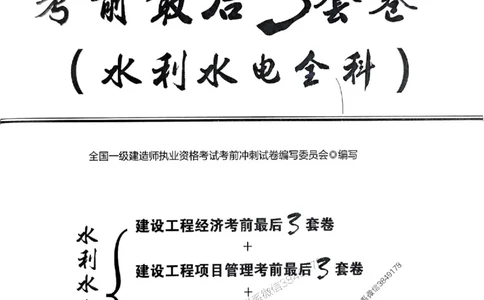 考前最后3套卷
(水利水电全科)
全国一级建造师执业资格考试考前冲刺试卷编写委员会◎编写
水利水
建设工程经济考前最后3套卷
+
建设工程项目管理考前最后3套卷
+